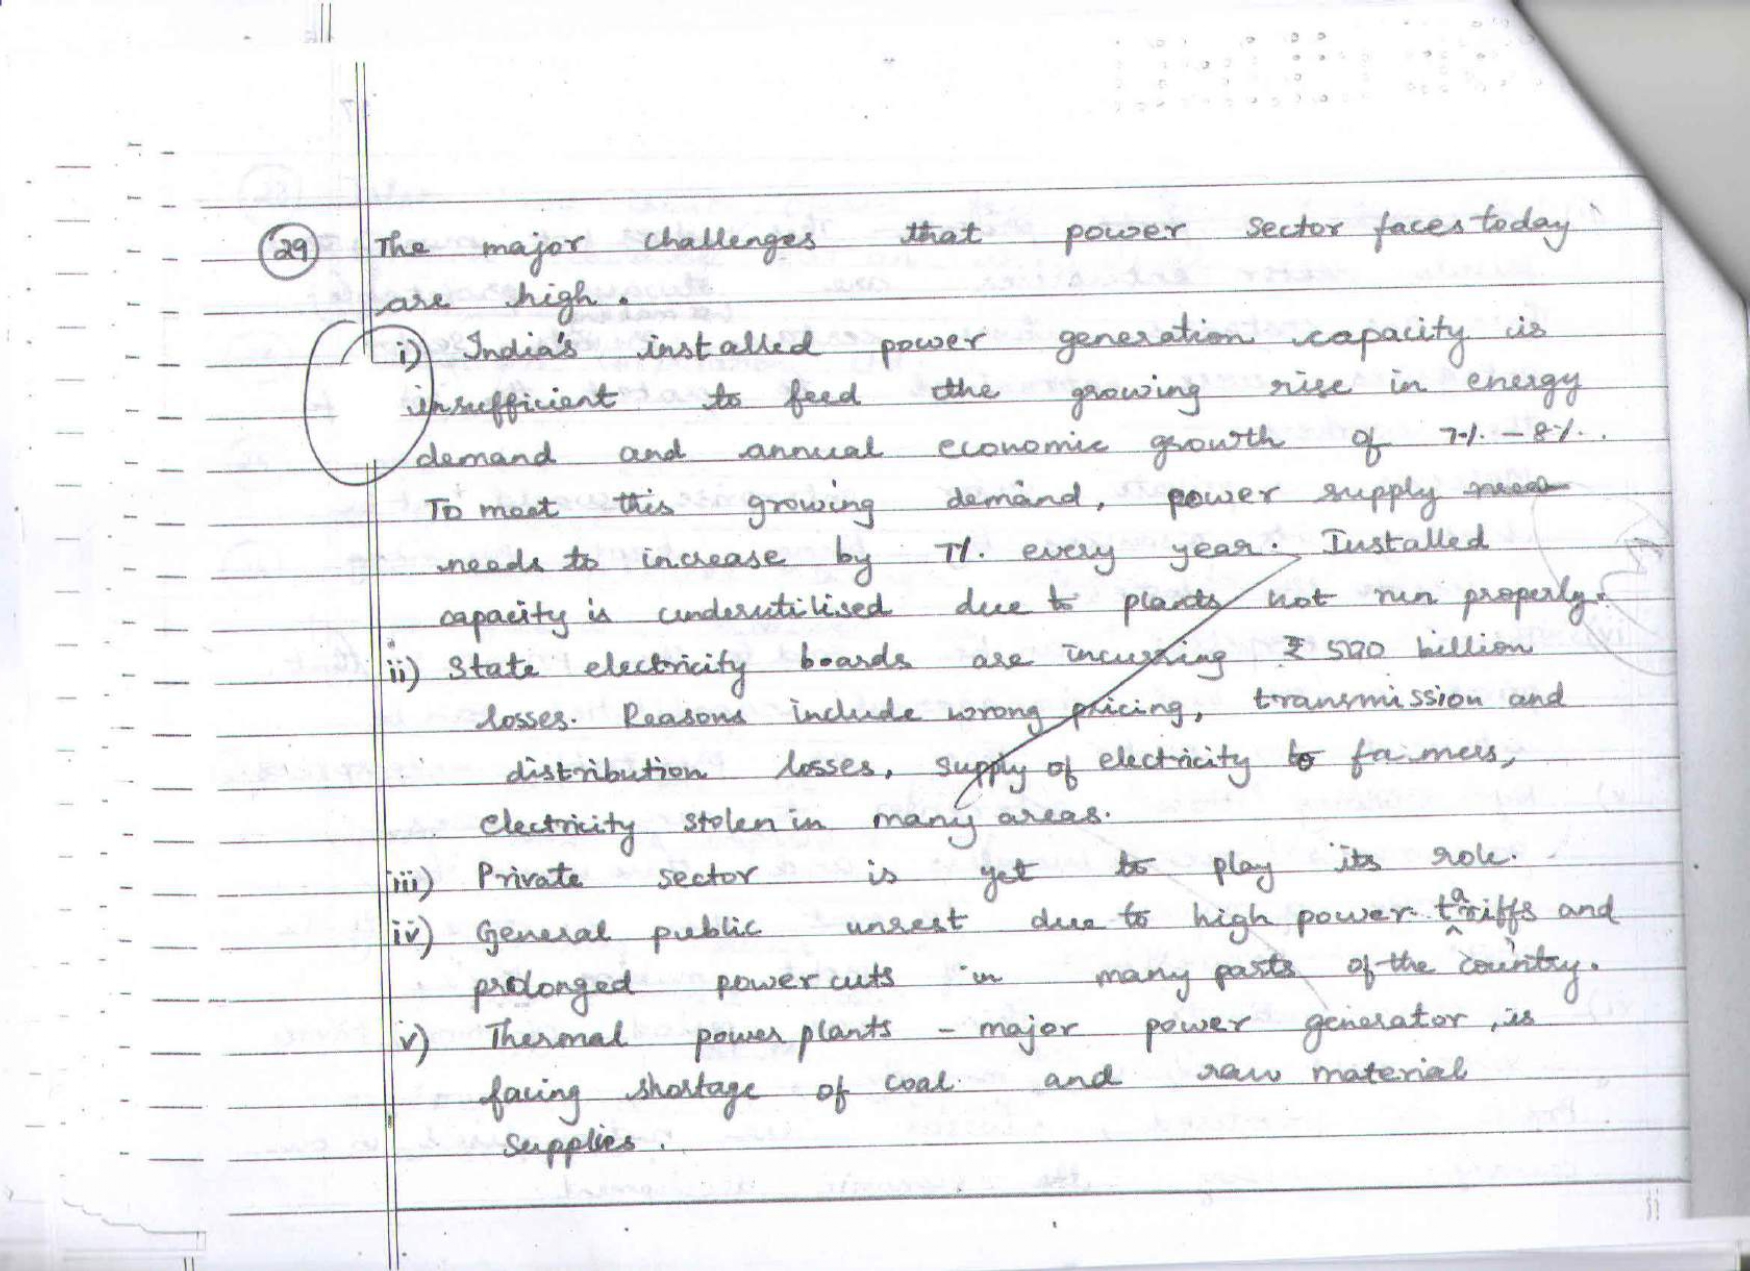 29 The major challenges that power sector faces today
are high.
i) India's installed power generation capacity is
insufficient to feed the growing rise in energy
demand and annual economic growth of 7% - 8%.
To meet this growing demand, power supply
needs to increase by 7% every year. Installed
capacity is underutilised due to plants not run properly.
ii) State electricity boards are incurring ₹ 500 billion
losses. Reasons include wrong pricing, transmission and
distribution losses, supply of electricity to farmers,
electricity stolen in many areas.
iii) Private sector is yet to play its role.
iv) General public unrest due to high power tariffs and
prolonged power cuts in many parts of the country.
v) Thermal power plants - major power generator, is
facing shortage of coal and raw material
supplies.